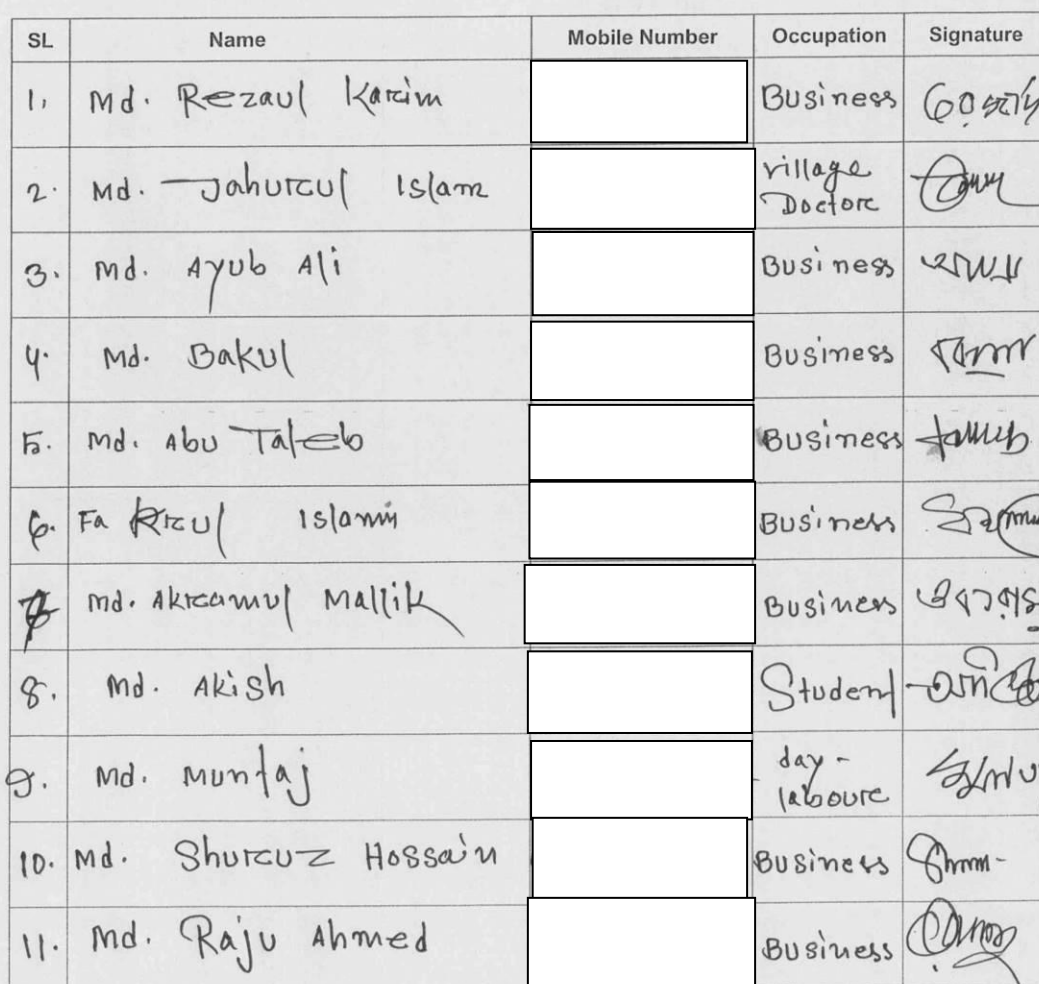 SL Name Mobile Number Occupation Signature
1. Md. Rezaul Karim Business
2. Md. Jahurul Islam village
Doctore
3. Md. Ayub Ali Business
4. Md. Bakul Business
5. Md. Abu Taleb Business
6. Fa Krul Islam Business
7 Md. Akramul Mallik Business
8. Md. Akish Student
9. Md. Muntaj day-
laboure
10. Md. Shuruz Hossain Business
11. Md. Raju Ahmed Business